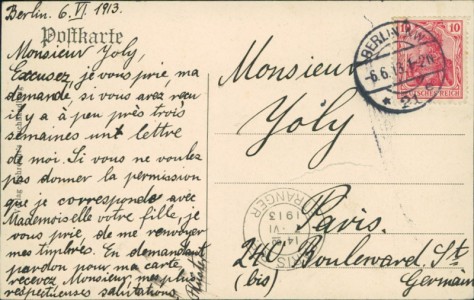 Berlin. 6. VI. 1913.
Postkarte
Monsieur Yoly,
Excusez, je vous prie, ma
demande, si vous avez reçu
il y a à peu près trois
semaines une lettre
de moi. Si vous ne voulez
pas donner la permission
que je corresponde avec
Mademoiselle votre fille, je
vous prie, de me renvoyer
mes timbres. En demandant
pardon pour ma carte
recevez, Monsieur, mes plus
respectueuses salutations
Monsieur
Yoly
Paris.
240 Boulevard St
(bis) Germain
BERLIN N.W.
-6.6.13.
* 21
10
DEUTSCHES REICH
PARIS
ETRANGER
VI
1913